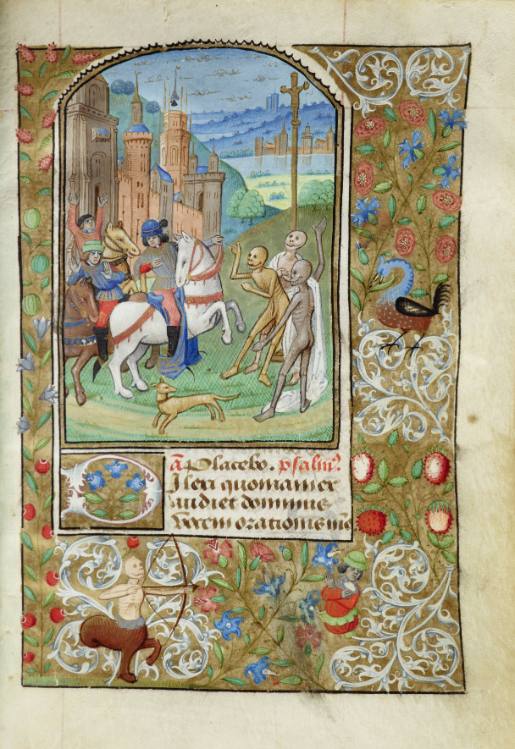 ā Placebo. psalmꝰ
Dilexi quoniam ex
audiet dominus
vocem orationis mee